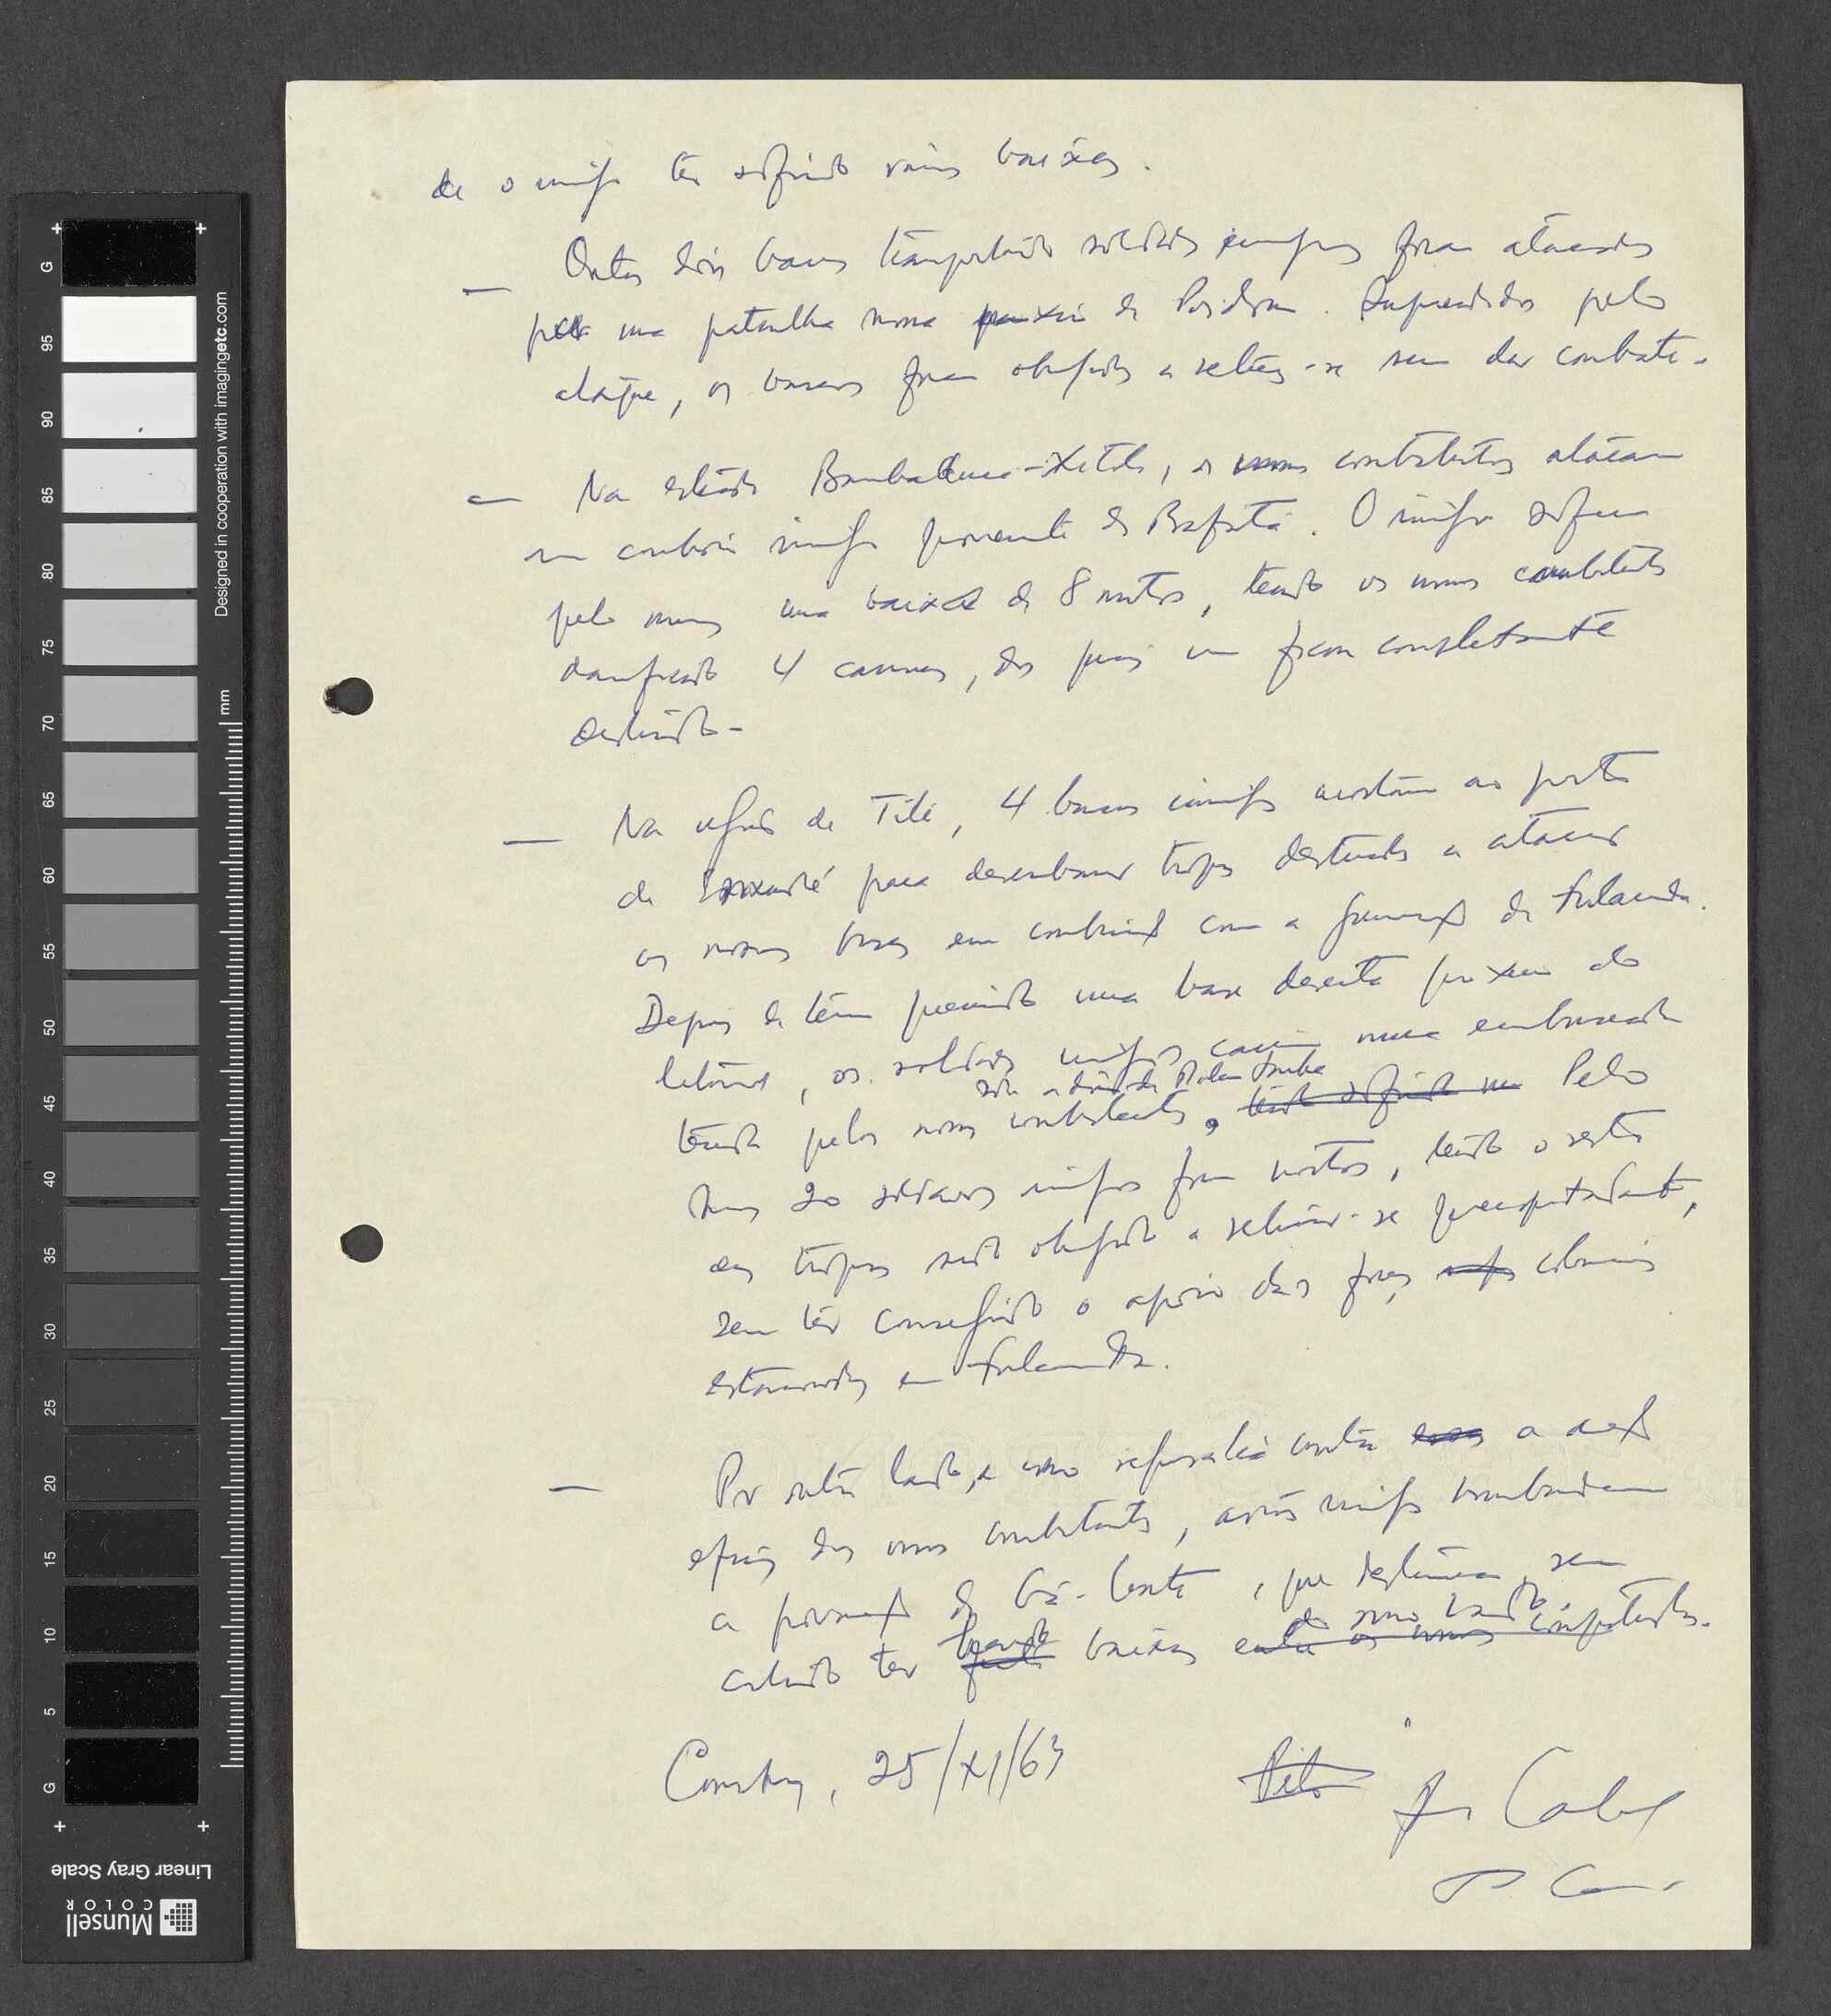 de o inimigo ter sofrido várias baixas.
— Outros dois barcos transportando soldados inimigos foram atacados
por uma patrulha nossa de Porto. Surpreendidos pelo
ataque, os barcos foram obrigados a retirar-se sem dar combate.
— Na estrada Bambadinca-Xitole, os nossos combatentes atacaram
um comboio inimigo proveniente de Bafatá. O inimigo sofreu
pelo menos uma baixa de 8 mortos, tendo os nossos combatentes
danificado 4 camiões, dos quais um ficou completamente
destruído.
— Na região de Tite, 4 barcos inimigos acostaram ao porto
de Enxudé para desembarcar tropas destinadas a atacar
as nossas forças em combinação com a guarnição de Fulacunda.
Depois de terem queimado uma base deserta próximo do
litoral, os soldados inimigos caíram numa emboscada
sob a direção de
tecida pelos nossos combatentes, tendo sofrido um Pelo
menos 20 soldados inimigos foram mortos, tendo o resto
das tropas sido obrigado a retirar-se precipitadamente,
sem ter conseguido o apoio das forças coloniais
estacionadas em Fulacunda.
— Por outro lado, e como represália contra a acção
eficaz dos nossos combatentes, aviões inimigos bombardearam
a povoação de, que destruíram, sem
do nosso lado.
contudo ter havido baixas entre os nossos compatriotas.
Conakry, 25/XI/63
Cabral